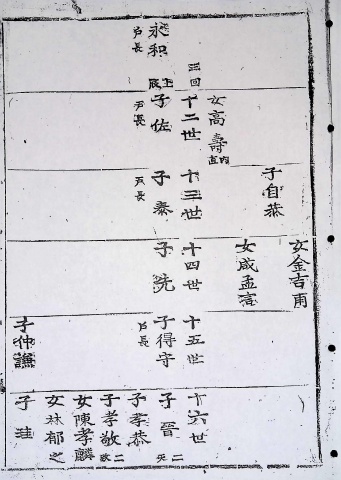 永積
戶長
三回
十二世
子佐
戶長
女高壽
直內
十三世
子泰
戶長
子自恭
十四世
子
女成孟
女金吉甫
十五世
子得守
戶長
子仲謙
十六世
子晉
子孝恭
子孝敬
女陳孝麟
女林郁之
子珪